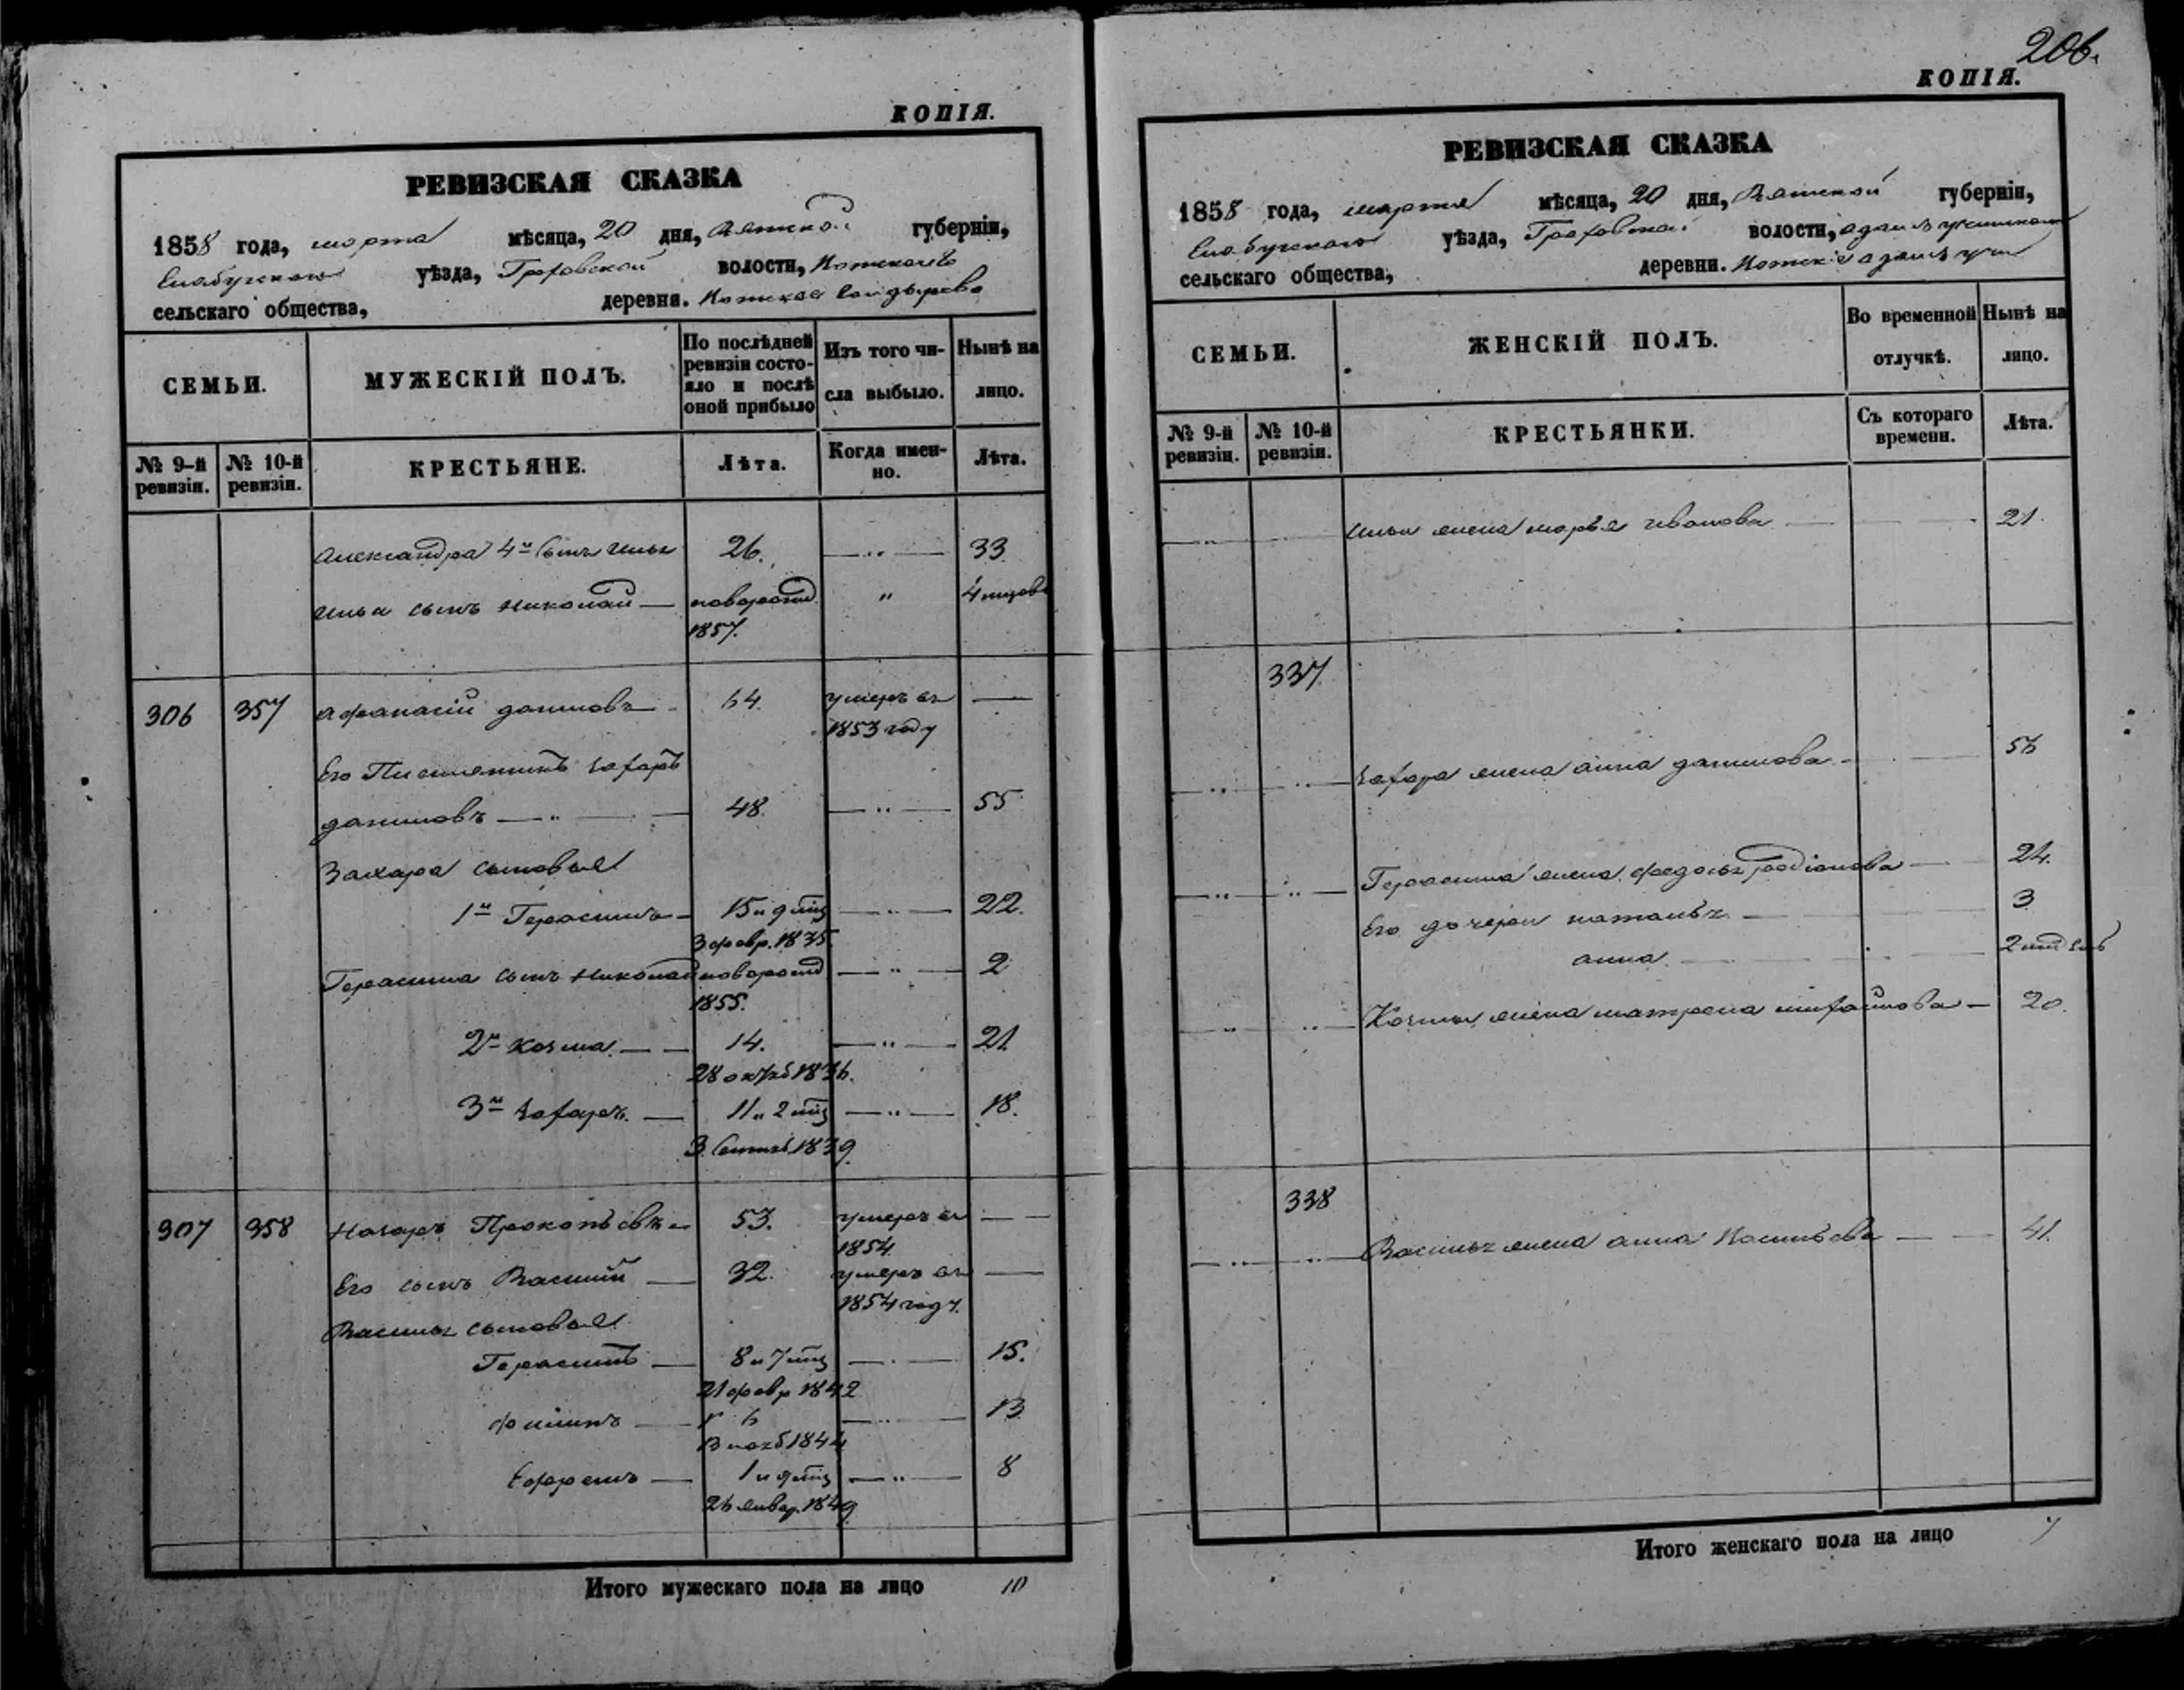 КОПІЯ.
РЕВИЗСКАЯ СКАЗКА
1858 года, марта мѣсяца, 20 дня, Вятской губерніи,
Елабугскаго уѣзда, Граховской волости,
сельскаго общества, деревни.
СЕМЬИ. МУЖЕСКІЙ ПОЛЪ. По послѣдней ревизіи состояло и послѣ оной прибыло Изъ того числа выбыло. Нынѣ на лицо.
№ 9-й ревизіи. № 10-й ревизіи. КРЕСТЬЯНЕ. Лѣта. Когда именно. Лѣта.
Александра 4й сынъ Илья 26. 33
Ильи сынъ Николай новорожд 4
1857.
306 357 Афанасій Даниловъ 64. умеръ въ
1853 году
Его Захаръ
Даниловъ 48. 55
Захара сыновья
1й Герасимъ 15 и 9 мѣц 22.
3 февр. 1835.
Герасима сынъ Николай новорожд 2
1855.
2й Козма 14. 21.
28 октяб 1836.
3й Захаръ 11 и 2 мѣц 18.
3 Сентяб. 1839.
307 358 Назаръ Прокопьевъ 53. умеръ въ
1854.
Его сынъ Василій 32. умеръ въ
1854 году.
Василья сыновья
Герасимъ 8 и 7 мѣц 15.
21 февр 1842
Филипъ 6 13
13 нояб 1844
Ефремъ 1 и 9 мѣц 8
26 январ. 1849
Итого мужескаго пола на лицо 10
206.
КОПІЯ.
РЕВИЗСКАЯ СКАЗКА
1858 года, марта мѣсяца, 20 дня, Вятской губерніи,
Елабугскаго уѣзда, Граховской волости,
сельскаго общества, деревни.
СЕМЬИ. ЖЕНСКІЙ ПОЛЪ. Во временной отлучкѣ. Нынѣ на лицо.
№ 9-й ревизіи. № 10-й ревизіи. КРЕСТЬЯНКИ. Съ котораго времени. Лѣта.
Ильи жена Марья Иванова 21.
337
Захара жена Анна Данилова 56
Герасима жена Федосья Родіонова 24.
Его дочери Наталья 3
Анна 2
Козмы жена Матрена Михайлова 20.
338
Василья жена Анна 41.
Итого женскаго пола на лицо 7